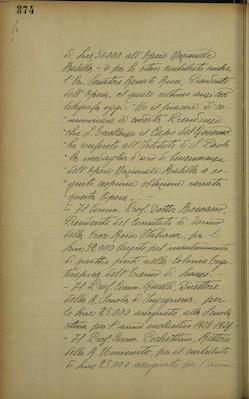 374
di Lire 50.000 all'Opera Nazionale
Balilla, - e per lo stesso contributo anche
l'On. Senatore Renato Ricci, Presidente
dell'Opera, il quale ultimo anzi così
telegrafa oggi: "Ho il piacere di co-
municare a codesta Presidenza
che S. Eccellenza il Capo del Governo
ha conferito all'Istituto di S. Paolo
la medaglia d'oro di benemerenza
dell'Opera Nazionale Balilla a se-
guito cospicua oblazione versata
questa Opera
- Il Comm. Prof. Dottor
Presidente del Comitato di Torino
della Croce Rossa Italiana, per le
Lire 52.000 largite pel mantenimento
di quattro posti nella Colonia
dell'Eremo di Lanzo. -
- Il Prof. Comm. Direttore
della R. Scuola di Ingegneria, per
lire 25.000 assegnate alla Scuola
stessa per l'anno scolastico 1928-1929.
- Il Prof. Comm. Rettore
della R. Università, per il contributo
di Lire 25.000 assegnato per l'anno